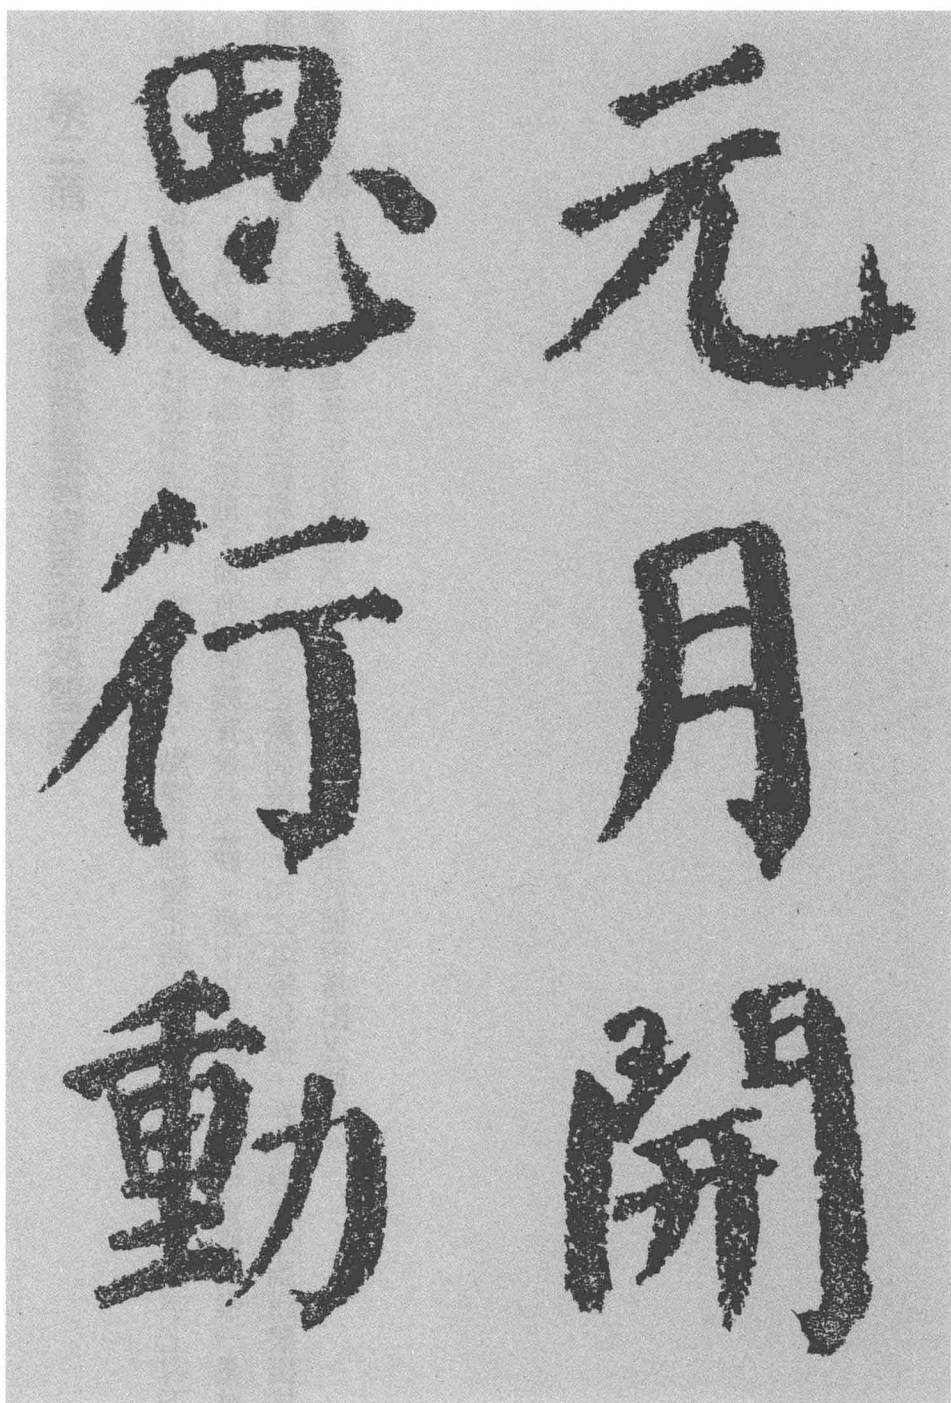 元月開
思行動